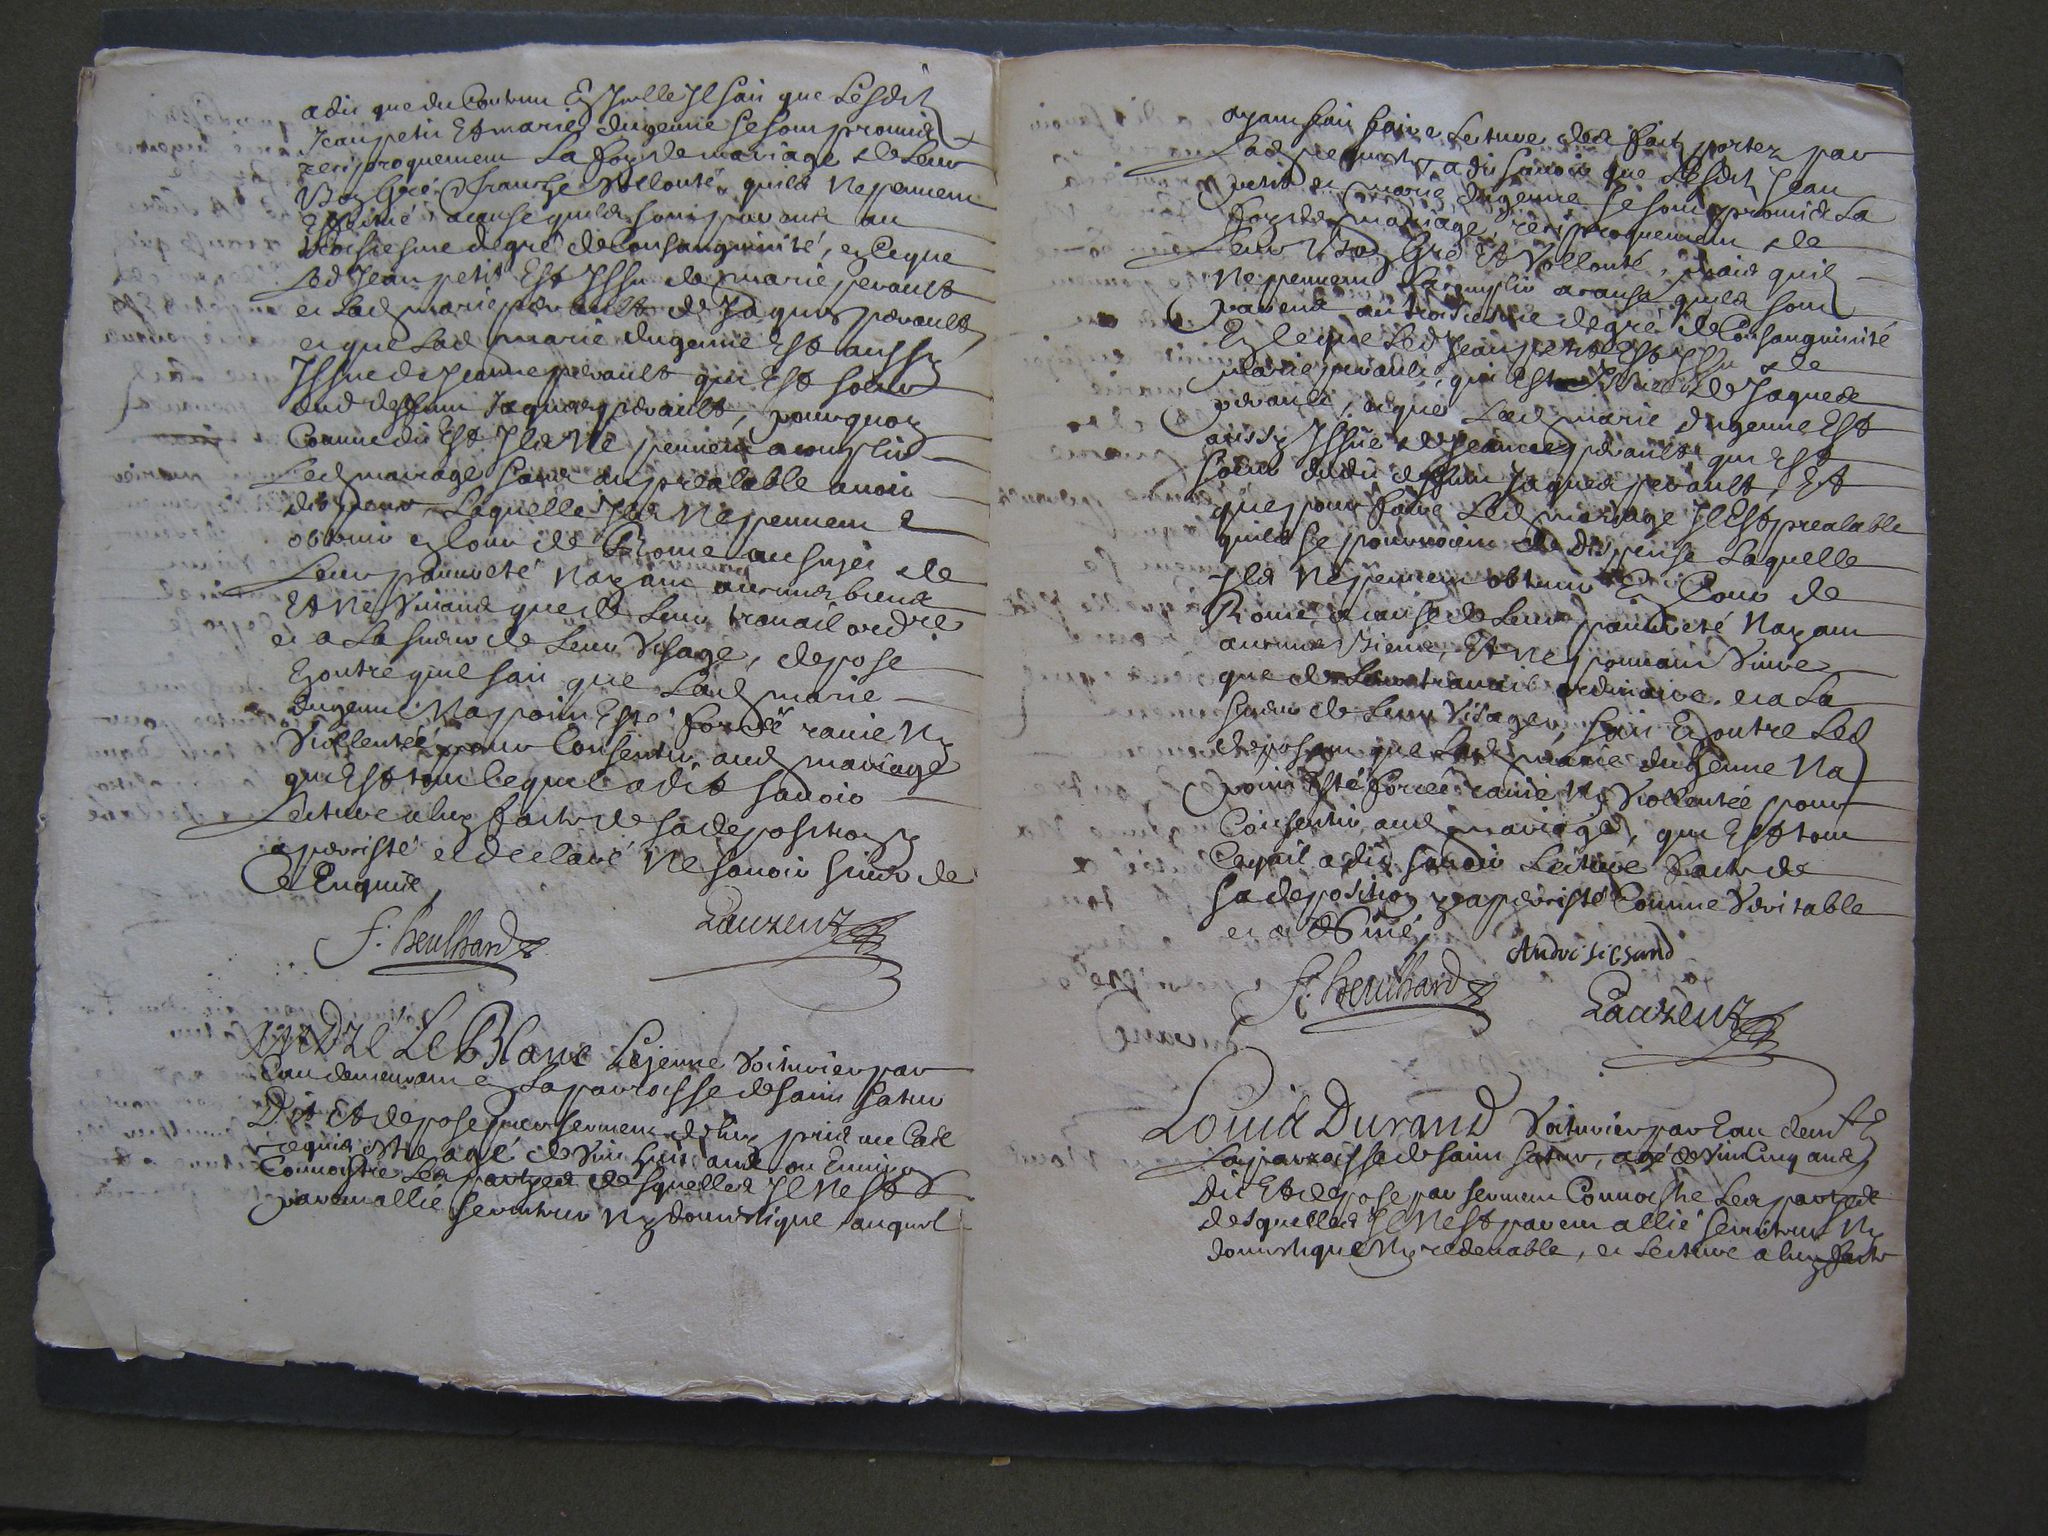 a dit que du Contenu En Jcelle Jl scait que Lesdits
Jean petit Et marie dugenne se sont promis
reciproquement La foy de mariage de Leur
bon Gré & franche Vollonté, quils ne peuvent
a cause quils sont parants au
troisiesme degré de Consanguinité, en Ce que
Led Jean petit Est Jssu de marie perault
et Lad marie perault de Jaques perault
et que Lad marie dugenne Est aussy
Jssue de Jeanne perault qui Est soeur
dud deffunt Jaques perault, pourquoy
Comme dit Est Jls Ne peuvent acomplir
Led mariage sans au prealable avoir
dispence, Laquelle Jls Ne peuvent
obtenir en Cour de Rome au sujet de
Leur pauvreté Nayant aucuns biens
Et Ne Vivants que de Leur travail ordre
et a La sueur de Leur Visage, depose
En outre quil scait que Lad marie
dugenne Na point Esté forcée ravie Ny
Viollentée pour Consentir aud mariage
qui Est tout Ce quil a dit scavoir
Lecture a luy faicte de sa deposition y
a persisté et declaré Ne scavoir signer de
Ce Enquis,
f. heulhard Lauzent
André Le Blanc Lejeune Voiturier par
Eau demeurant en La parroisse de saint satur
Dit Et depose par serment de luy pris au Cas
requis Estre agé de Vint huit ans ou Environ
Connoistre Les partyes desquelles Jl Nest
parent allié serviteur Ny domestique auquel
ayant fait faire Lecture des faits portez par
Lad requeste a dit scavoir que Lesdits Jean
petit et marie dugenne se sont promis La
foy de mariage, reciproquement de
Leur bon Gré Et Vollonté, mais quils
Ne peuvent Lacomplir a cause quils sont
parens au troisiesme degré de Consanguinité
En Ce que Led Jean petit Est Jssu de
marie perault, qui Est de Jaques
perault, et que Lad marie dugenne Est
aussy Jssue de Jeanne perault qui Est
soeur dudit deffunt Jaques perault, Et
que pour faire Led mariage Jl Est prealable
quils se pourvoient de dispense Laquelle
Jls Ne peuvent obtenir En Cour de
Rome, a cause de Leur pauvreté Nayant
aucuns biens, Et Ne pouvant Vivre
que de Leur travail ordinaire, et a La
sueur de Leur Visage, scait En outre Led
deposant que Lad marie dugenne Na
point Esté forcée ravie Ny Viollentée pour
Consentir aud mariage, qui Est tout
Ce quil a dit scavoir Lecture faicte de
sa deposition y a persisté Comme Veritable
et a Signé,
f. heulhard Lauzent
Louis Durand Voiturier par Eau demt En
La parroisse de saint satur, agé de Vint Cinq ans
Dit Et depose par serment Connoistre Les partyes
desquelles Jl Nest parent allié serviteur Ny
domestique Ny redevable, et Lecture a luy faicte